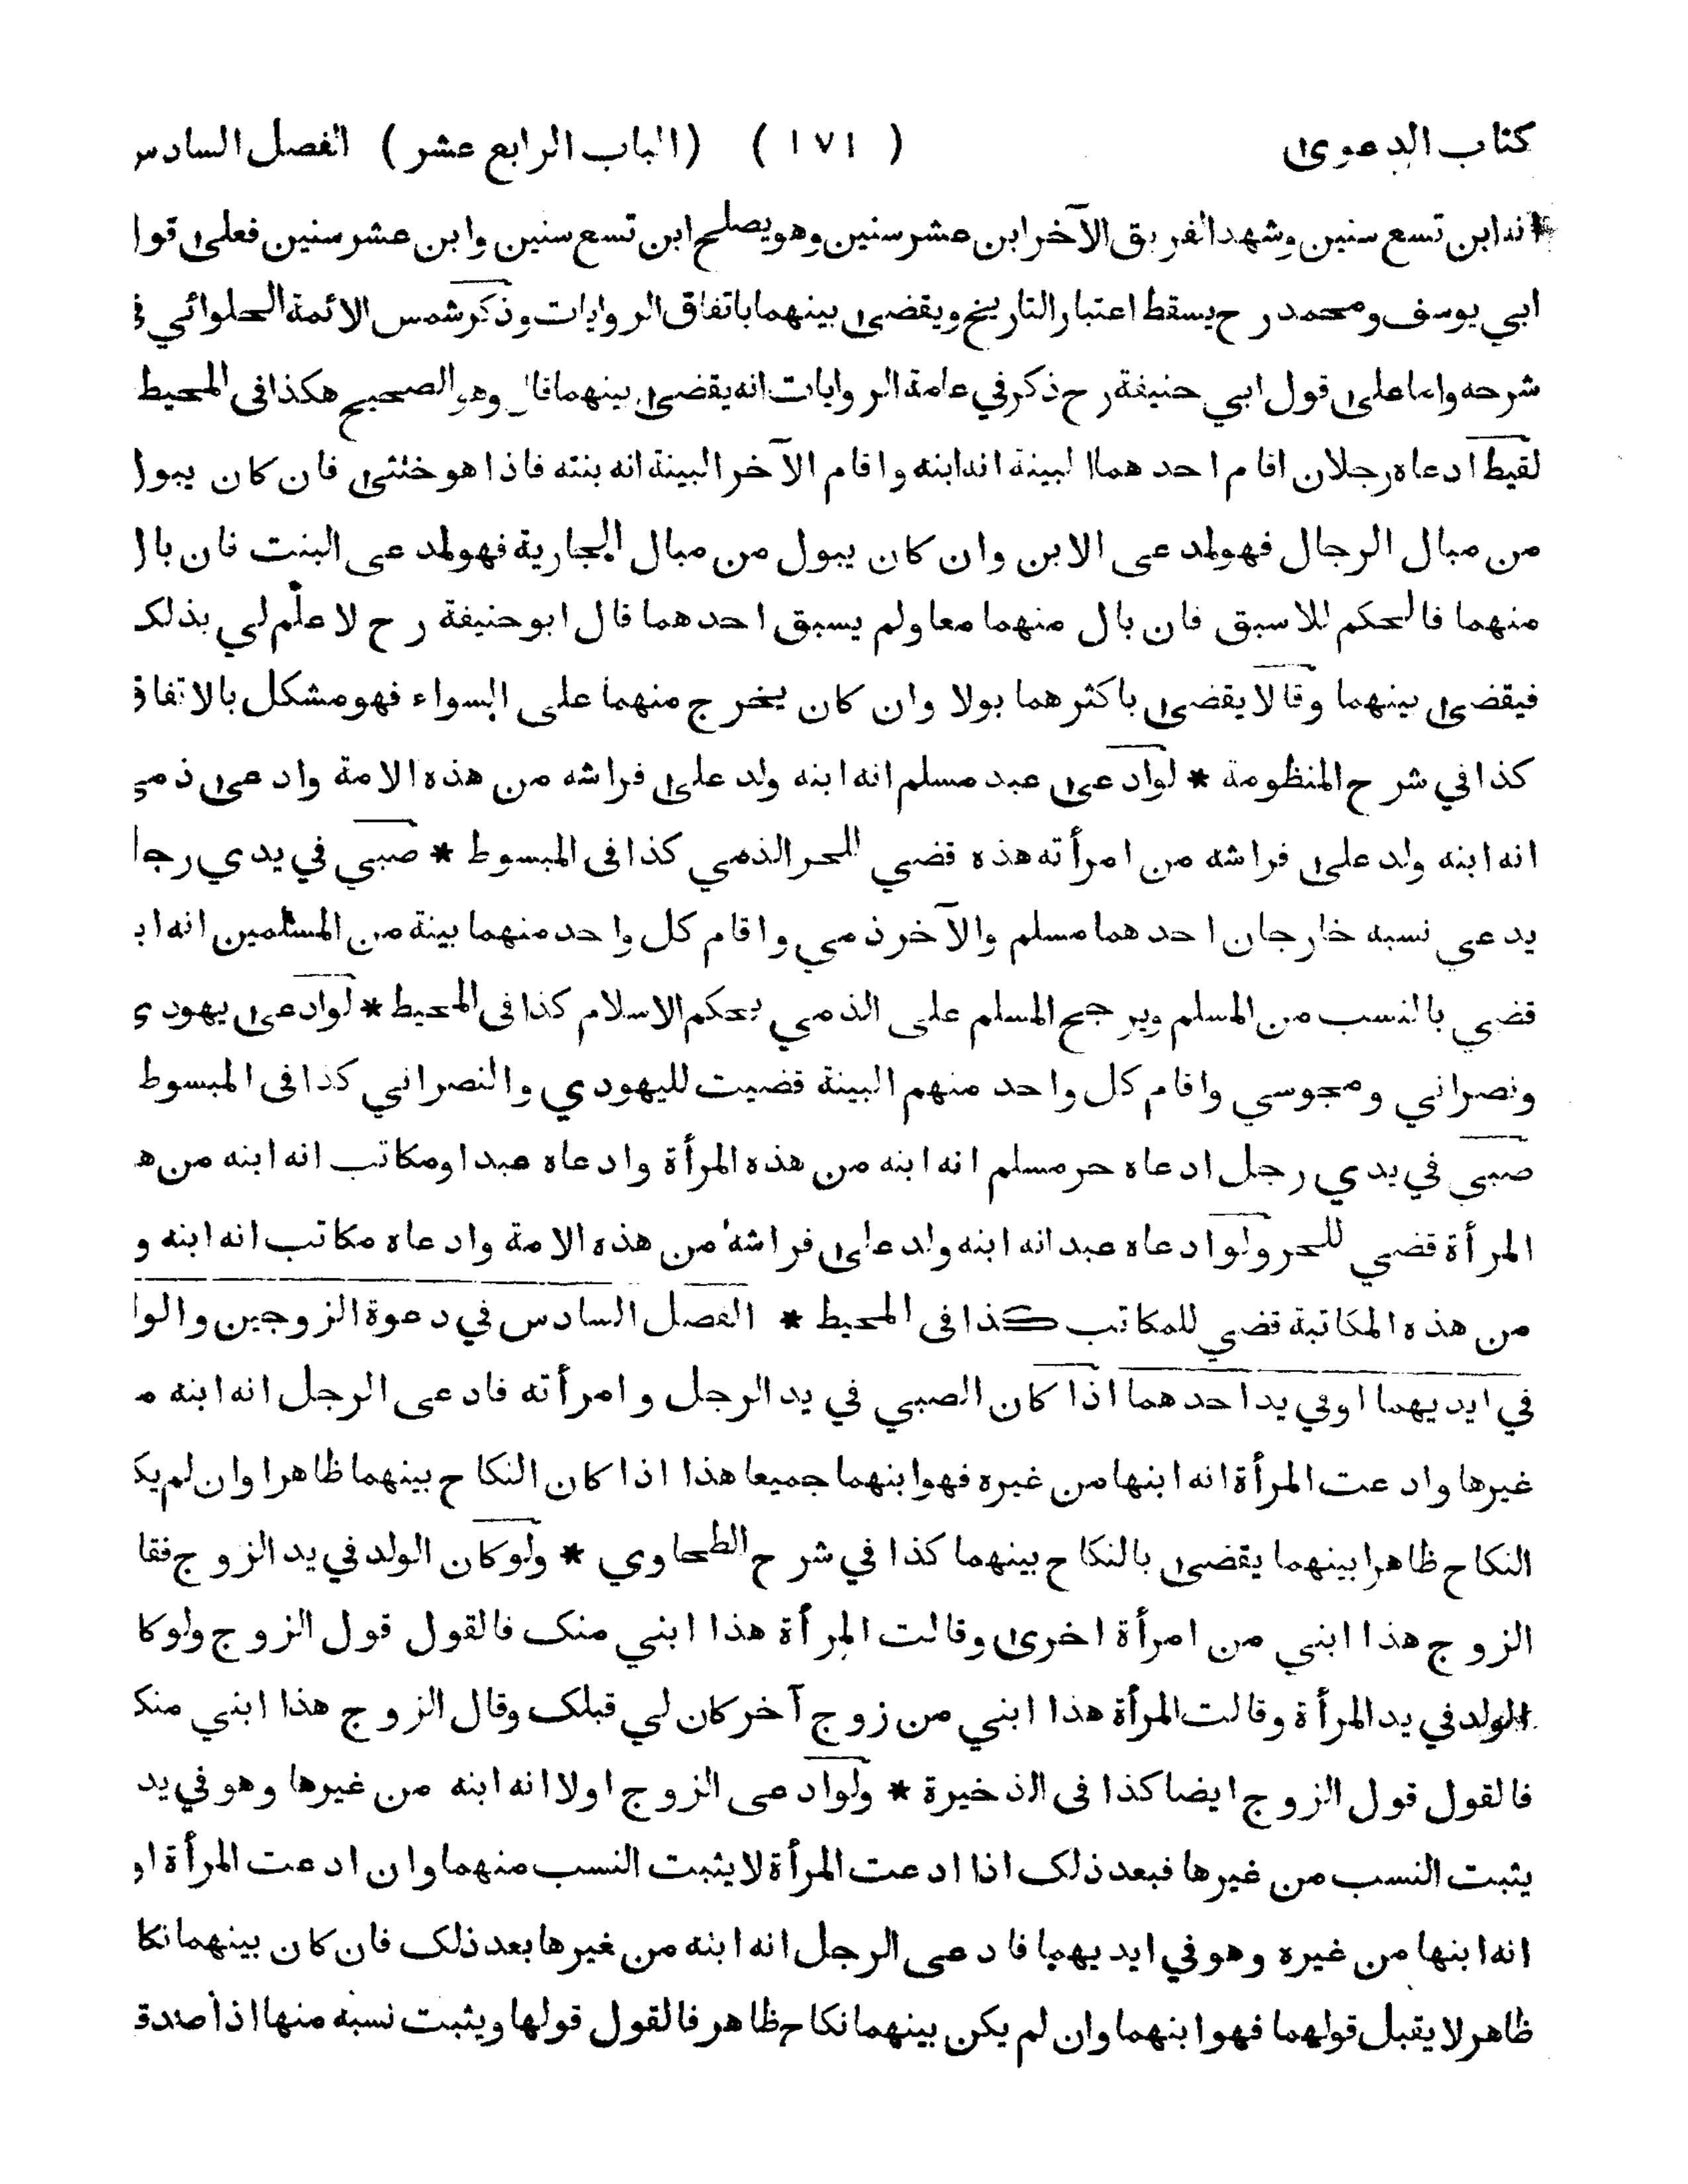 كتاب الدعوى ( ١٧١ ) (الباب الرابع عشر) الفصل السادس
انه ابن تسع سنين وشهد الفريق الآخر ابن عشر سنين وهو يصلح ابن تسع سنين وابن عشر سنين فعلى
ابي يوسف ومحمد رح يسقط اعتبار التاريخ ويقضى بينهما باتفاق الروايات وذكر شمس الائمة الحلوائي
شرحه واما على قول ابي حنيفة رح ذكر في عامة الروايات انه يقضى بينهما قال وهو الصحيح هكذا فى المحيط
لقيط ادعاه رجلان اقام احدهما البينة انه ابنه واقام الآخر البينة انه بنته فاذا هو خنثى فان كان يبول
من مبال الرجال فهو لمدعى الابن وان كان يبول من مبال الجارية فهو لمدعى البنت فان بال
منهما فالحكم للاسبق فان بال منهما معا ولم يسبق احدهما قال ابو حنيفة رح لا علم لي بذلك
فيقضى بينهما وقالا يقضى باكثرهما بولا وان كان يخرج منهما على السواء فهو مشكل بالاتفاق
كذا في شرح المنظومة * لو ادعى عبد مسلم انه ابنه ولد على فراشه من هذه الامة وادعى ذمي
انه ابنه ولد على فراشه من امرأته هذه قضي للحر الذمي كذا فى المبسوط * صبي في يدي رجل
يدعي نسبه خارجان احدهما مسلم والآخر ذمي واقام كل واحد منهما بينة من المسلمين انه ا
قضي بالنسب من المسلم ويرجح المسلم على الذمي بحكم الاسلام كذا فى المحيط * لو ادعى يهودي
ونصراني ومجوسي واقام كل واحد منهم البينة قضيت لليهودي والنصراني كذا فى المبسوط
صبي في يدي رجل ادعاه حر مسلم انه ابنه من هذه المرأة وادعاه عبد او مكاتب انه ابنه من ه
المرأة قضي للحر ولو ادعاه عبد انه ابنه ولد على فراشه من هذه الامة وادعاه مكاتب انه ابنه و
من هذه المكاتبة قضي للمكاتب كذا فى المحيط * الفصل السادس في دعوة الزوجين والو
في ايديهما او في يد احدهما اذا كان الصبي في يد الرجل وامرأته فادعى الرجل انه ابنه م
غيرها وادعت المرأة انه ابنها من غيره فهو ابنهما جميعا هذا اذا كان النكاح بينهما ظاهرا وان لم يك
النكاح ظاهرا بينهما يقضى بالنكاح بينهما كذا في شرح الطحاوي * ولو كان الولد في يد الزوج فقا
الزوج هذا ابني من امرأة اخرى وقالت المرأة هذا ابني منك فالقول قول الزوج ولو كا
الولد في يد المرأة وقالت المرأة هذا ابني من زوج آخر كان لي قبلك وقال الزوج هذا ابني منك
فالقول قول الزوج ايضا كذا فى الذخيرة * ولو ادعى الزوج اولا انه ابنه من غيرها وهو في يد
يثبت النسب من غيرها فبعد ذلك اذا ادعت المرأة لا يثبت النسب منهما وان ادعت المرأة او
انه ابنها من غيره وهو في ايديهما فادعى الرجل انه ابنه من غيرها بعد ذلك فان كان بينهما نكا
ظاهر لا يقبل قولهما فهو ابنهما وان لم يكن بينهما نكاح ظاهر فالقول قولها ويثبت نسبه منها اذا صدق